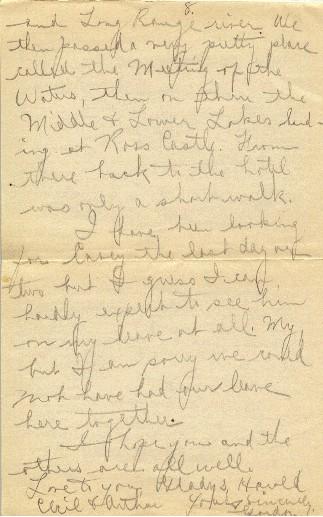 8.
and Long Range river. We
then passed a very pretty place
called the Meeting of the
Waters, then on thru the
Middle & Lower Lakes land-
ing at Ross Castle. From
there back to the hotel
was only a short walk.
I have been looking
for the last day or
two but I guess I can
hardly expect to see him
on my leave at all. My
but I am sorry we could
not have had our leave
here together.
I hope you and the
others are all well.
Love to you, Gladys, Harold
Cecil & Arthur Yours sincerely,
Gordon